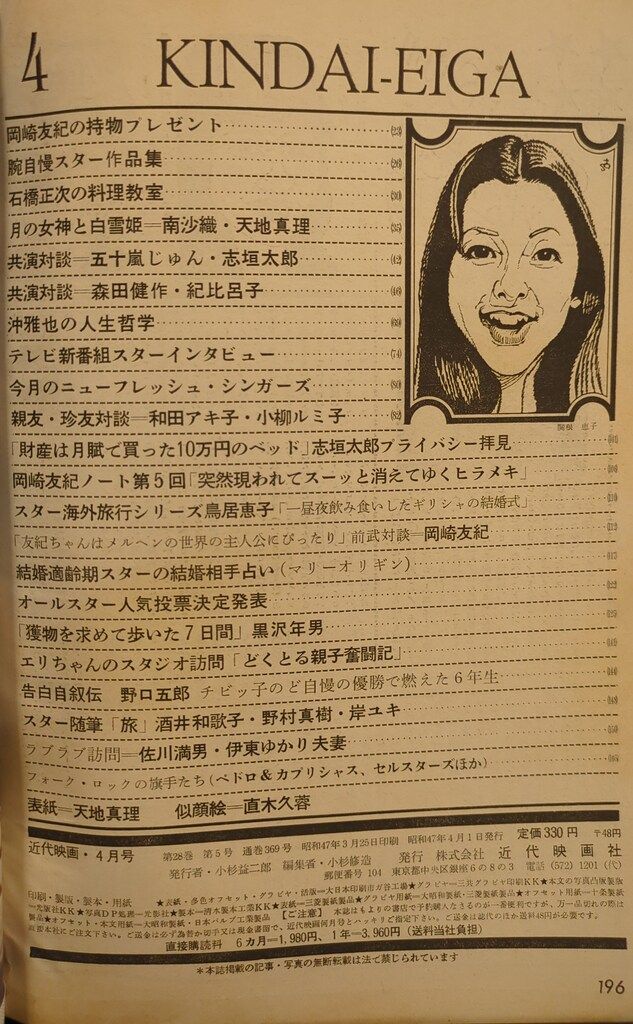 4 KINDAI-EIGA
岡崎友紀の持物プレゼント
腕自慢スター作品集
石橋正次の料理教室
月の女神と白雪姫＝南沙織・天地真理
共演対談＝五十嵐じゅん・志垣太郎
共演対談＝森田健作・紀比呂子
沖雅也の人生哲学
テレビ新番組スターインタビュー (74)
今月のニューフレッシュ・シンガーズ
親友・珍友対談＝和田アキ子・小柳ルミ子
関根 恵子
「財産は月賦で買った10万円のベッド」志垣太郎プライバシー拝見
岡崎友紀ノート第5回「突然現われてスーッと消えてゆくヒラメキ」
スター海外旅行シリーズ鳥居恵子「一昼夜飲み食いしたギリシャの結婚式」
「友紀ちゃんはメルヘンの世界の主人公にぴったり」前武対談＝岡崎友紀
結婚適齢期スターの結婚相手占い(マリーオリギン)
オールスター人気投票決定発表
「獲物を求めて歩いた7日間」黒沢年男
エリちゃんのスタジオ訪問「どくとる親子奮闘記」
告白自叙伝 野口五郎 チビッ子のど自慢の優勝で燃えた6年生
スター随筆「旅」酒井和歌子・野村真樹・岸ユキ
ラブラブ訪問＝佐川満男・伊東ゆかり夫妻
フォーク・ロックの旗手たち(ペドロ＆カプリシャス、セルスターズほか)
表紙＝天地真理 似顔絵＝直木久蓉
近代映画・4月号 第28巻 第5号 通巻369号 昭和47年3月25日印刷 昭和47年4月1日発行 定価330円 〒48円
発行者・小杉益二郎 編集者・小杉修造 発行 株式会社 近代映画社
郵便番号 104 東京都中央区銀座6の8の3 電話(572)1201(代)
印刷・製版・製本・用紙 ★表紙・多色オフセット・グラビヤ・活版＝大日本印刷市ガ谷工場★グラビヤ＝三共グラビヤ印刷KK★本文の写真凸版製版
＝光版社KK★写真DP処理＝光影社★製本＝清水製本工業KK★表紙＝三菱製紙製品★グラビヤ用紙＝大昭和製紙・三菱製紙製品★オフセット用紙＝十条製紙
製品★オフセット・本文用紙＝大昭和製紙・日本パルプ工業製品 【ご注意】 本誌はもよりの書店で予約購入なさるのが一番便利ですが、万一品切れの際は
直接本社にご注文下さい。ご送金は必ず為替か切手又は現金書留で、近代映画何月号とハッキリご指定下さい。ご送金は誌代のほか送料48円が必要です。
直接購読料 6カ月＝1,980円、1年＝3,960円(送料当社負担)
＊本誌掲載の記事・写真の無断転載は法で禁じられています
196